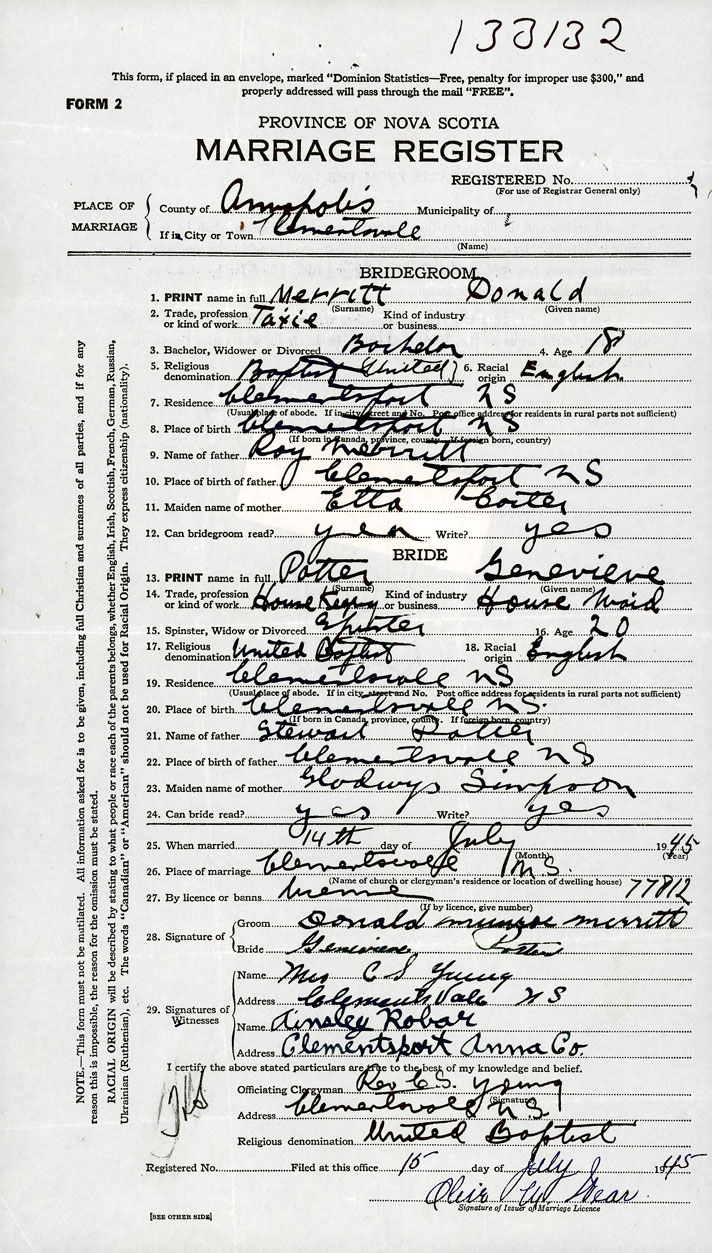 133132
This form, if placed in an envelope, marked “Dominion Statistics—Free, penalty for improper use $300,” and
properly addressed will pass through the mail “FREE”.
FORM 2
PROVINCE OF NOVA SCOTIA
MARRIAGE REGISTER
REGISTERED No.
(For use of Registrar General only)
PLACE OF MARRIAGE
County of Annapolis Municipality of
If in City or Town Clementsvale
(Name)
BRIDEGROOM
1. PRINT name in full Merritt Donald
(Surname) (Given name)
2. Trade, profession or kind of work Taxie Kind of industry or business
3. Bachelor, Widower or Divorced Bachelor 4. Age 18
5. Religious denomination Baptist (United) 6. Racial origin English
7. Residence Clementsport NS
(Usual place of abode. If in city street and No. Post office address for residents in rural parts not sufficient)
8. Place of birth Clementsport NS
(If born in Canada, province, county. If foreign born, country)
9. Name of father Roy Merritt
10. Place of birth of father Clementsport NS
11. Maiden name of mother Etta
12. Can bridegroom read? yes Write? yes
BRIDE
13. PRINT name in full Potter Genevieve
(Surname) (Given name)
14. Trade, profession or kind of work House Keeping Kind of industry or business House Maid
15. Spinster, Widow or Divorced Spinster 16. Age 20
17. Religious denomination United Baptist 18. Racial origin English
19. Residence Clementsvale NS
(Usual place of abode. If in city, street and No. Post office address for residents in rural parts not sufficient)
20. Place of birth Clementsvale NS.
(If born in Canada, province, county. If foreign born, country)
21. Name of father Stewart Potter
22. Place of birth of father Clementsvale NS
23. Maiden name of mother Gladwys Simpson
24. Can bride read? yes Write? yes
25. When married 14th day of July 1945
(Month) (Year)
26. Place of marriage Clementsvale N.S.
(Name of church or clergyman's residence or location of dwelling house)
27. By licence or banns 77812
(If by licence, give number)
28. Signature of
Groom Donald Munroe Merritt
Bride Genevieve Potter
29. Signatures of Witnesses
Name Mrs C S Young
Address Clements Vale NS
Name Ainsley Robar
Address Clementsport Anna Co.
I certify the above stated particulars are true to the best of my knowledge and belief.
Officiating Clergyman Rev C.S. Young
(Signature)
Address Clementsvale N.S.
Religious denomination United Baptist
Registered No. Filed at this office 15 day of July 1945
Signature of Issuer of Marriage Licence
[SEE OTHER SIDE]
NOTE.—This form must not be mutilated. All information asked for is to be given, including full Christian and surnames of all parties, and if for any
reason this is impossible, the reason for the omission must be stated.
RACIAL ORIGIN will be described by stating to what people or race each of the parents belongs, whether English, Irish, Scottish, French, German, Russian,
Ukrainian (Ruthenian), etc. The words “Canadian” or “American” should not be used for Racial Origin. They express citizenship (nationality).